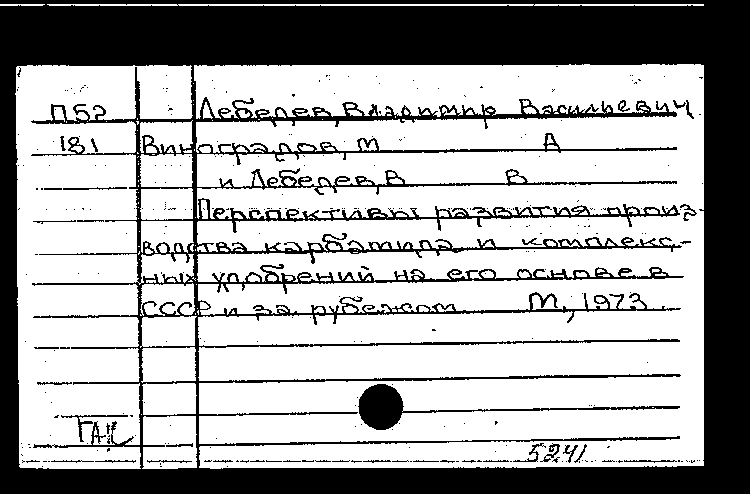 П52 Лебедев, Владимир Васильевич
181 Виноградов, М А
и Лебедев, В В
Перспективы развития произ-
водства карбамида и комплекс-
ных удобрений на его основе в
СССР и за рубежом М., 1973.
5241